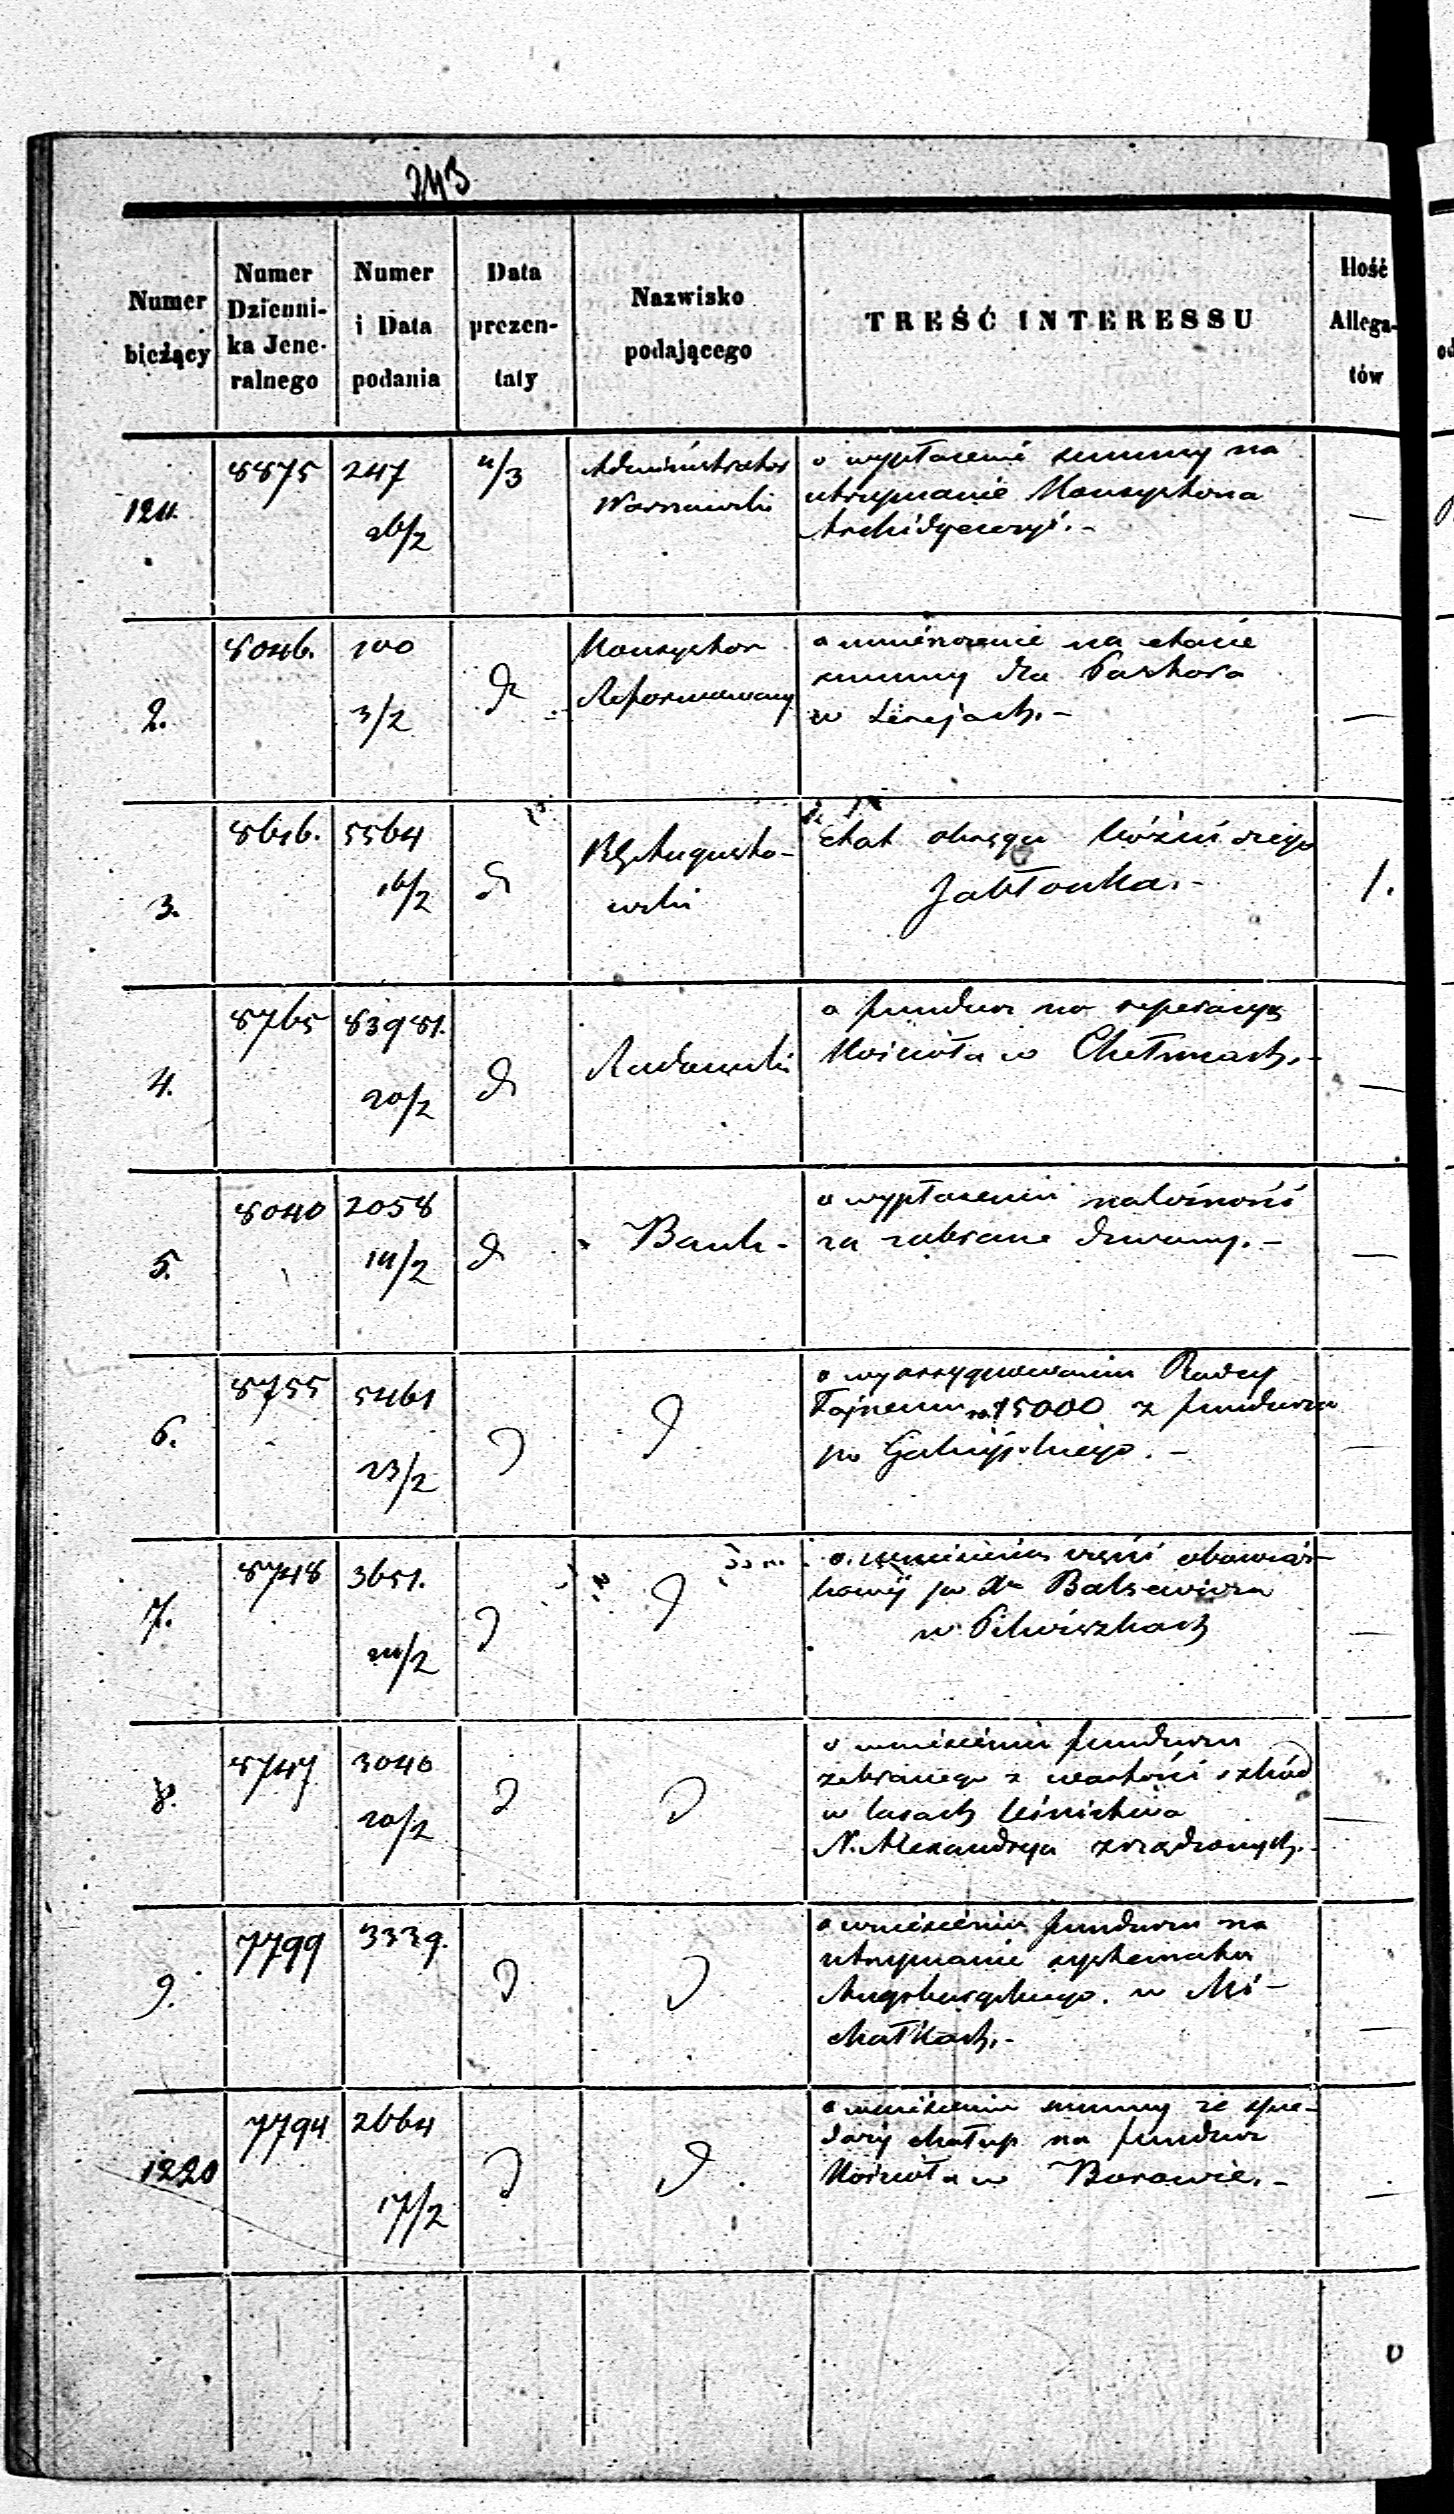 243
Numer bieżący
Numer Dzienni-ka Jene-ralnego
Numer i Data podania
Data prezen-taty
Nazwisko podającego
TREŚĆ INTERESSU
Ilość Allega-tów
1211.
8875
247
26/2
4/3
Administrator
Warszawski
o wypłacenie summy na
utrzymanie Konsystorza
Archidyecezyi.-
2.
8046.
100
3/2
Konsystor
Reformowany
o umieszczenie na etacie
summy dla Pastora
w Serejach.-
3.
8616.
5564
16/2
RG Augusto-
wski
etat okręgu
Jabłonka.-
1.
4.
8765
83981.
20/2
Radomski
o fundusz na reperacyą
Kościoła w Chełmach.-
5.
8040
2058
14/2
Bank-
o wypłacenie należności
za zabrane dywany.-
6.
8755
5461
23/2
o wyassygnowanie Radcy
Tajnemu rs 15000 z funduszu
po
7.
8748
3651.
o wniesieniu części obowiąz-
kowéj po Xu
w Pilwiszkach
8.
8747
3040
20/2
o wniesieniu funduszu
zebranego z wartości szkód
w lasach leśnictwa
N. Alexandrya zrządzonych.-
9.
7799
3339.
o wniesieniu funduszu na
utrzymanie
Augsburgskiego w Mi-
chałkach.-
1220
7794
2664
17/2
o wniesieniu summy ze sprze-
daży chałup na fundusz
Kościoła w Borowie.-